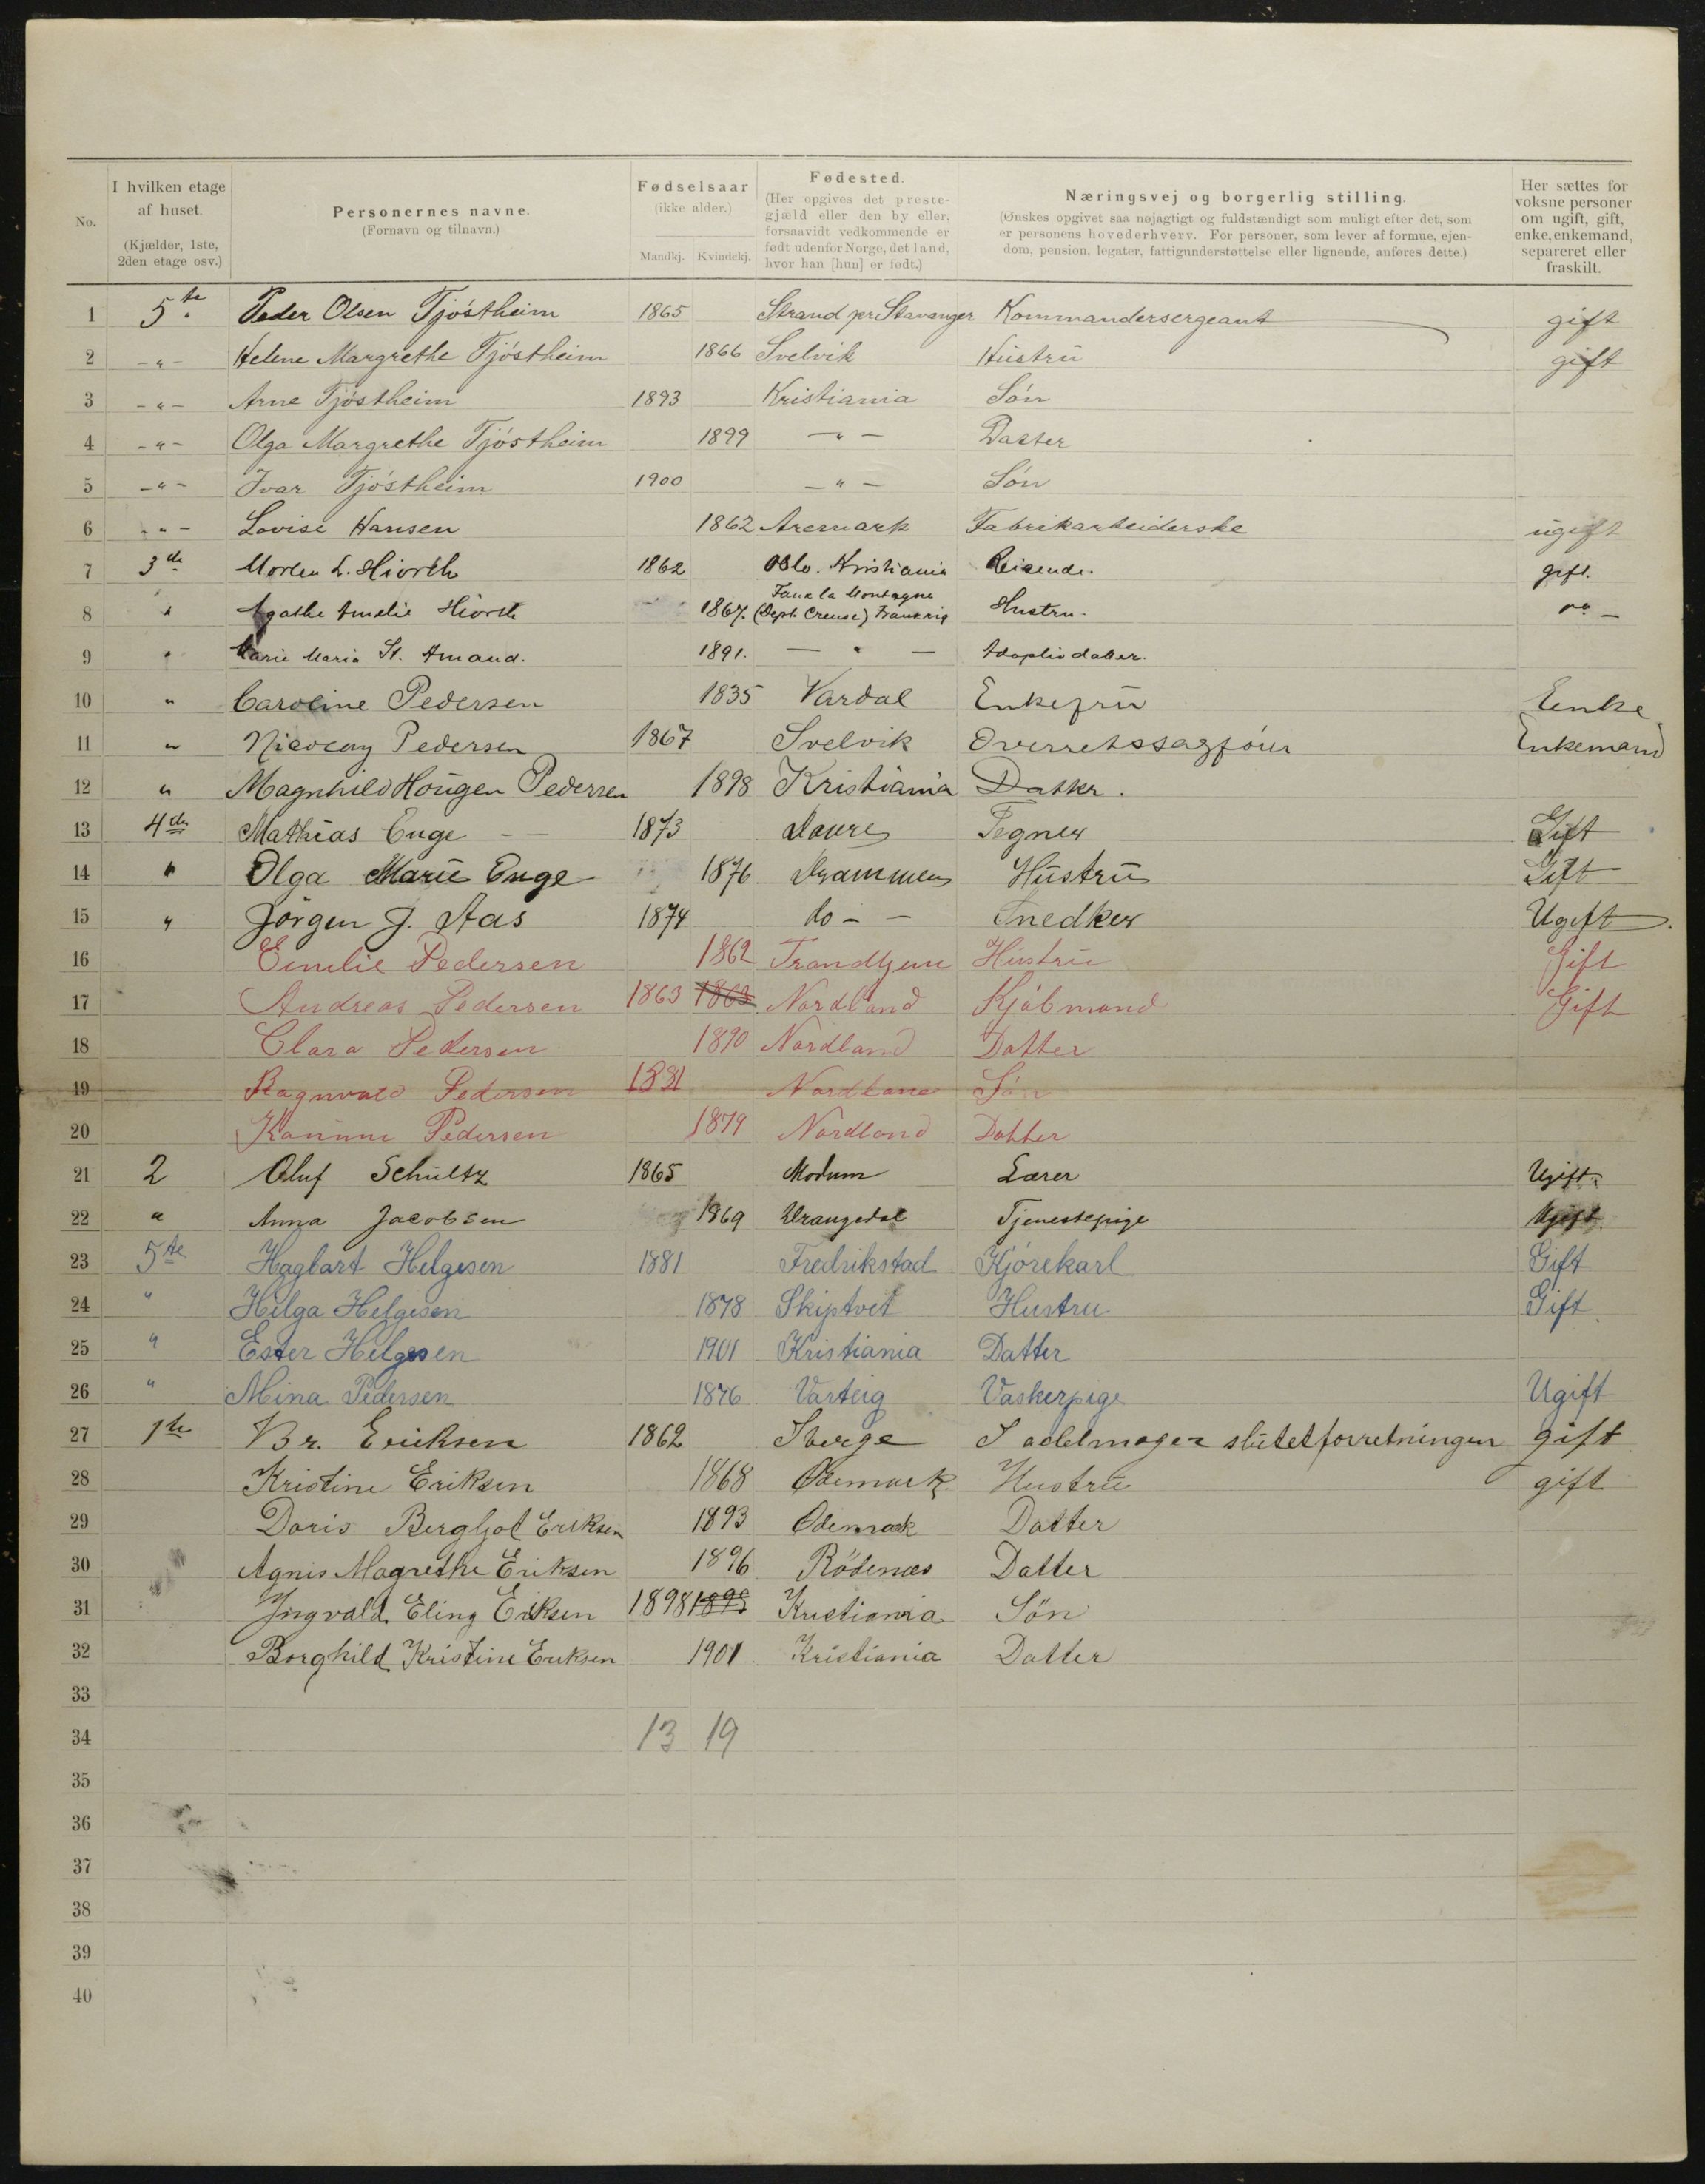 No.
I hvilken etage af huset. (Kjælder, 1ste, 2den etage osv.)
Personernes navne. (Fornavn og tilnavn.)
Fødselsaar (ikke alder.) Mandkj. Kvindekj.
Fødested. (Her opgives det prestegjæld eller den by eller, forsaavidt vedkommende er født udenfor Norge, det land, hvor han [hun] er født.)
Næringsvej og borgerlig stilling. (Ønskes opgivet saa nøjagtigt og fuldstændigt som muligt efter det, som er personens hovederhverv. For personer, som lever af formue, ejendom, pension, legater, fattigunderstøttelse eller lignende, anføres dette.)
Her sættes for voksne personer om ugift, gift, enke, enkemand, separeret eller fraskilt.
1 5te Peder Olsen Tjóstheim 1865 Strand pr Stavanger Kommandersergeant gift
2 -"- Helene Margrethe Tjóstheim 1866 Svelvik Hustru gift
3 -"- Arne Tjóstheim 1893 Kristiania Són
4 -"- Olga Margrethe Tjóstheim 1899 -"- Datter
5 -"- Ivar Tjóstheim 1900 -"- Són
6 -"- Lovise Hansen 1862 Aremark Fabrikarbeiderske ugift
7 3de Morten L. Hiorth 1862 Oslo. Kristiania Reisende. gift.
8 " Agathe Amelie Hiorth 1867. Faux la Montagne (Dept. Creuse) Frankrig Hustru. do -
9 " Marie Maria St. Amand. 1891. - " - Adoptivdatter.
10 " Caroline Pedersen 1835 Vardal Enkefru Eenke
11 " Nicolay Pedersen 1867 Svelvik Overretssagfórer Enkemand
12 " Magnhild Hougen Pedersen 1898 Kristiania Datter.
13 4de Mathias Enge - - 1873 Daure Tegner Gift
14 " Olga Marie Enge 1876 Drammen Hustru Gift
15 " Jörgen J. Aas 1874 do - - Snedker Ugift.
16 Emilie Pedersen 1862 Trondhjem Hustru Gift
17 Andreas Pedersen 1863 1863 Nordland Kjóbmand Gift
18 Clara Pedersen 1890 Nordland Datter
19 Ragnvald Pedersen 1881 Nordland Són
20 Pedersen 1879 Nordland Datter
21 2 Oluf Schultz 1865 Modum Lærer Ugift.
22 " Anna Jacobsen 1869 Drangedal Tjenestepige Ugift.
23 5te Hagbart Helgesen 1881 Fredrikstad Kjórekarl Gift
24 " Helga Helgesen 1878 Skiptvet Hustru Gift.
25 " Ester Helgesen 1901 Kristiania Datter
26 " Mina Pedersen 1876 Varteig Vaskerpige Ugift
27 1ste Br. Eriksen 1862 Sverge Sadelmager slutet forretningen gift
28 Kristine Eriksen 1868 Ødemark Hustru gift
29 Doris Bergljot Eriksen 1893 Ödemark Datter
30 Agnis Magrethe Eriksen 1896 Ródenæs Datter
31 Yngvald Eling Eriksen 1898 1898 Kristiania Sön
32 Borghild Kristine Eriksen 1901 Kristiania Datter
33
34 13 19
35
36
37
38
39
40